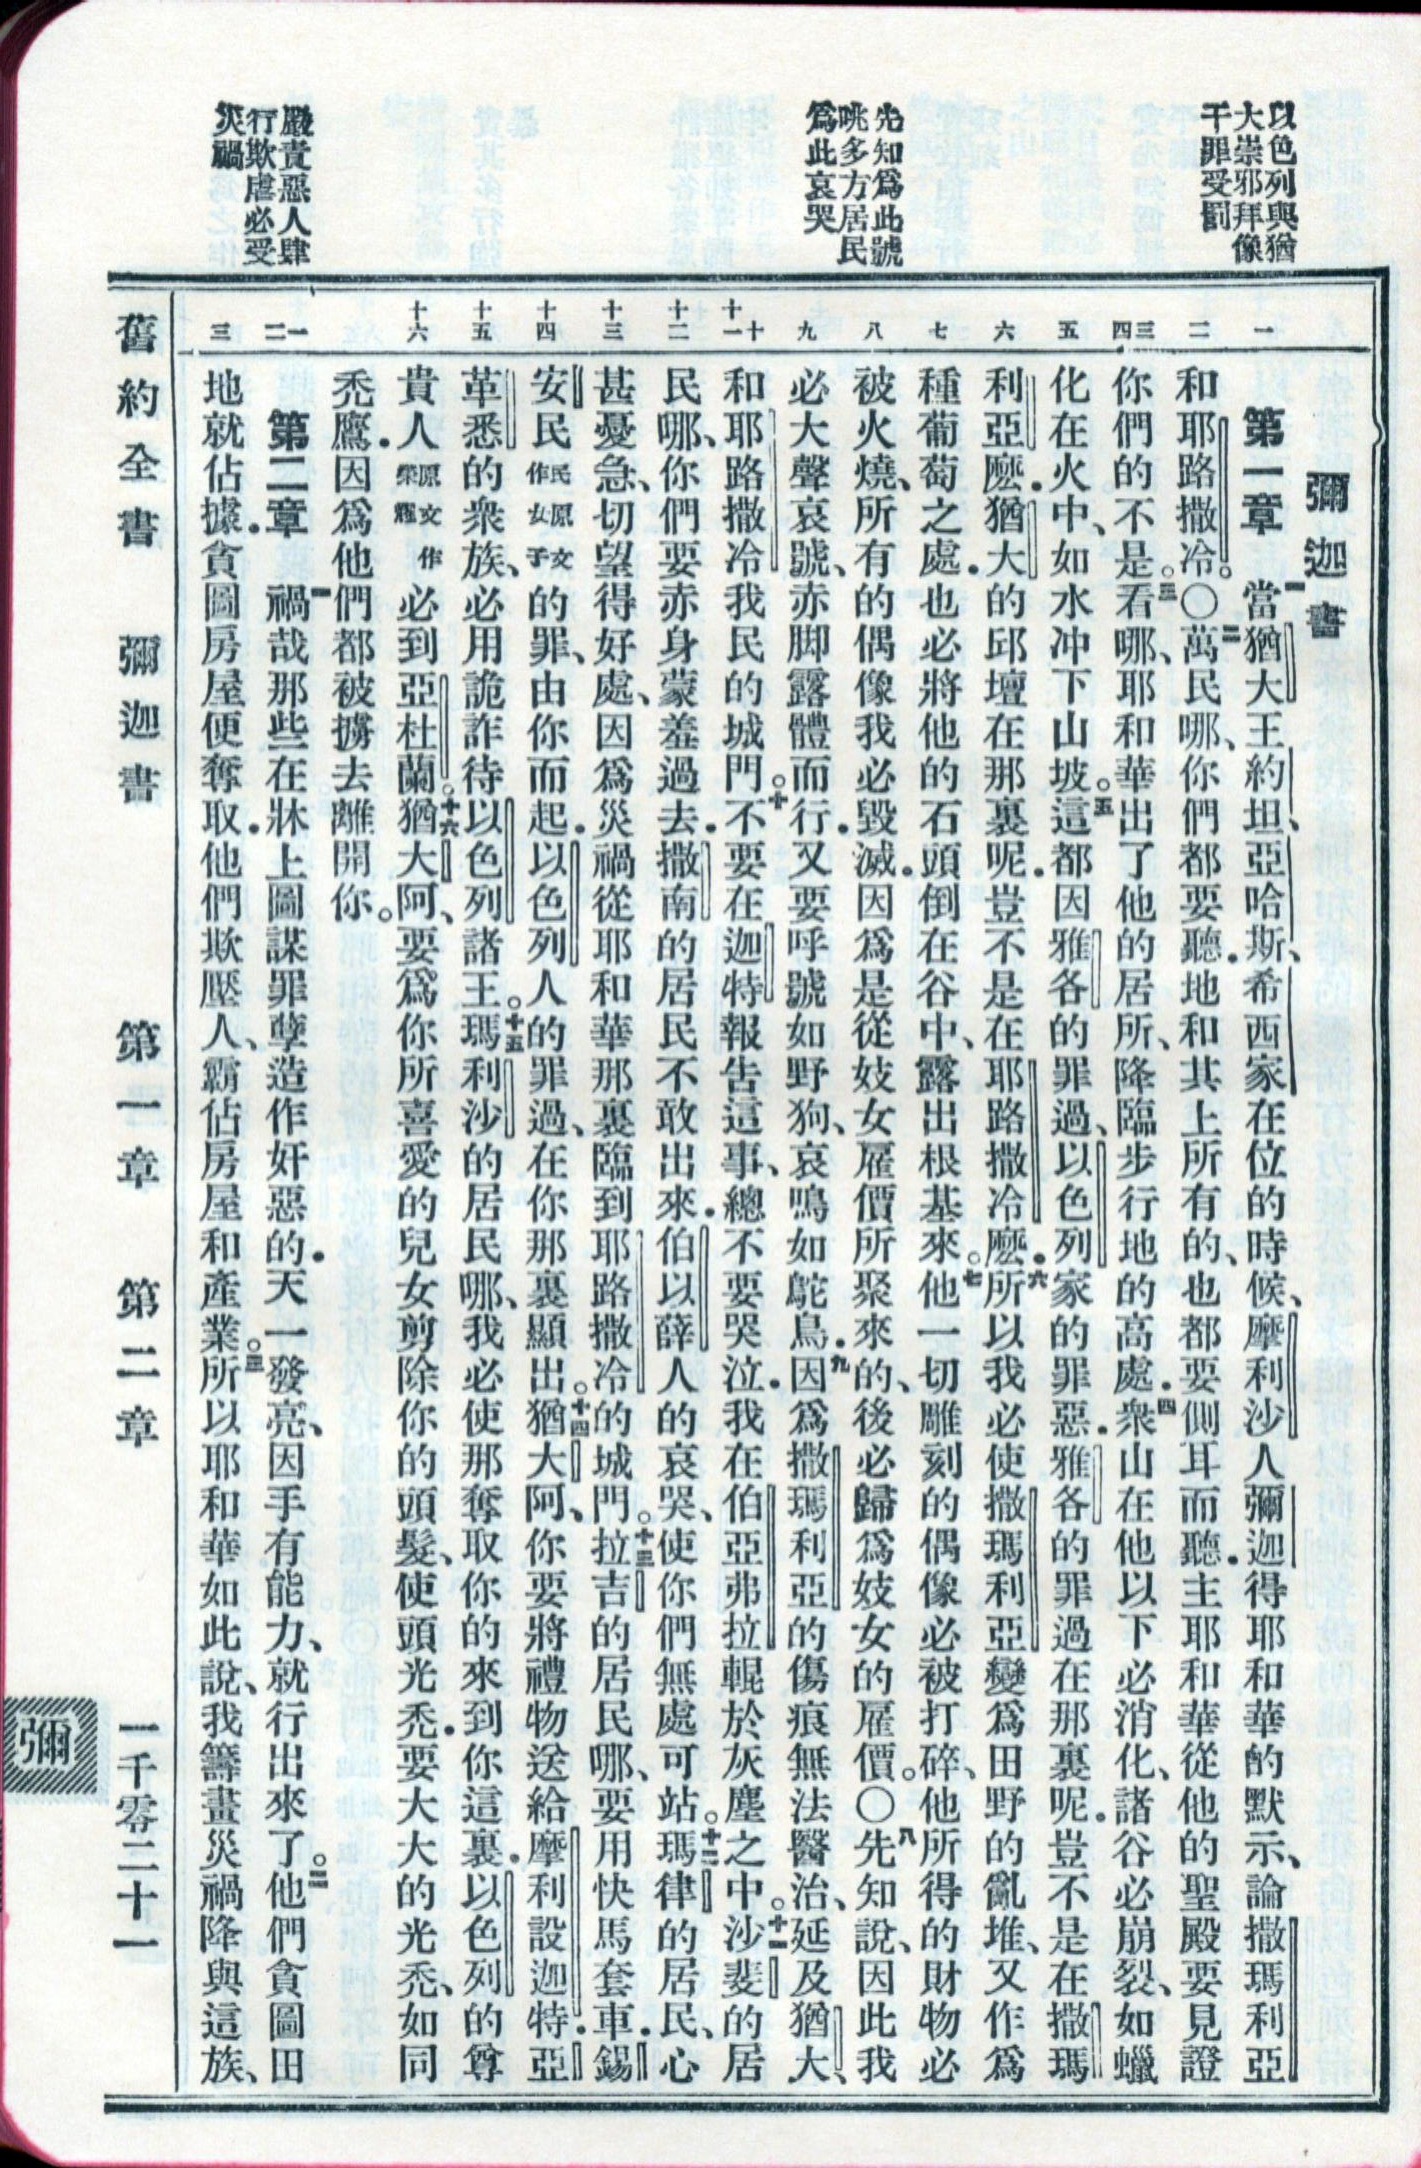 以色列與猶
大崇邪拜像
干罪受罰
先知爲此號
咷多方居民
爲此哀哭
嚴責惡人肆
行欺虐必受
災禍
一
二
三
四
五
六
七
八
九
十
十一
十二
十三
十四
十五
十六
一
二
三
彌迦書
第一章 一當猶大王約坦、亞哈斯、希西家在位的時候、摩利沙人彌迦得耶和華的默示、論撒瑪利亞
和耶路撒冷。〇二萬民哪、你們都要聽．地和其上所有的、也都要側耳而聽．主耶和華從他的聖殿要見證
你們的不是。三看哪、耶和華出了他的居所、降臨步行地的高處．四衆山在他以下必消化、諸谷必崩裂、如蠟
化在火中、如水冲下山坡。五這都因雅各的罪過、以色列家的罪惡．雅各的罪過在那裏呢．豈不是在撒瑪
利亞麽．猶大的邱壇在那裏呢．豈不是在耶路撒冷麽．六所以我必使撒瑪利亞變爲田野的亂堆、又作爲
種葡萄之處．也必將他的石頭倒在谷中、露出根基來。七他一切雕刻的偶像必被打碎、他所得的財物必
被火燒、所有的偶像我必毀滅．因爲是從妓女雇價所聚來的、後必歸爲妓女的雇價。〇八先知說、因此我
必大聲哀號、赤脚露體而行．又要呼號如野狗、哀鳴如鴕鳥．九因爲撒瑪利亞的傷痕無法醫治、延及猶大、
和耶路撒冷我民的城門。十不要在迦特報告這事、總不要哭泣．我在伯亞弗拉輥於灰塵之中。十一沙斐的居
民哪、你們要赤身蒙羞過去．撒南的居民不敢出來．伯以薛人的哀哭、使你們無處可站。十二瑪律的居民、心
甚憂急、切望得好處、因爲災禍從耶和華那裏臨到耶路撒冷的城門。十三拉吉的居民哪、要用快馬套車．錫
安民民原文作女子的罪、由你而起．以色列人的罪過、在你那裏顯出。十四猶大阿、你要將禮物送給摩利設迦特．亞
革悉的衆族、必用詭詐待以色列諸王。十五瑪利沙的居民哪、我必使那奪取你的來到你這裏．以色列的尊
貴人原文作榮耀必到亞杜蘭。十六猶大阿、要爲你所喜愛的兒女剪除你的頭髮、使頭光禿．要大大的光禿、如同
禿鷹．因爲他們都被擄去離開你。
第二章 一禍哉那些在牀上圖謀罪孽造作奸惡的．天一發亮、因手有能力、就行出來了。二他們貪圖田
地就佔據．貪圖房屋便奪取．他們欺壓人、霸佔房屋和產業。三所以耶和華如此說、我籌畫災禍降與這族、
舊約全書 彌迦書 第一章 第二章 一千零二十一
彌